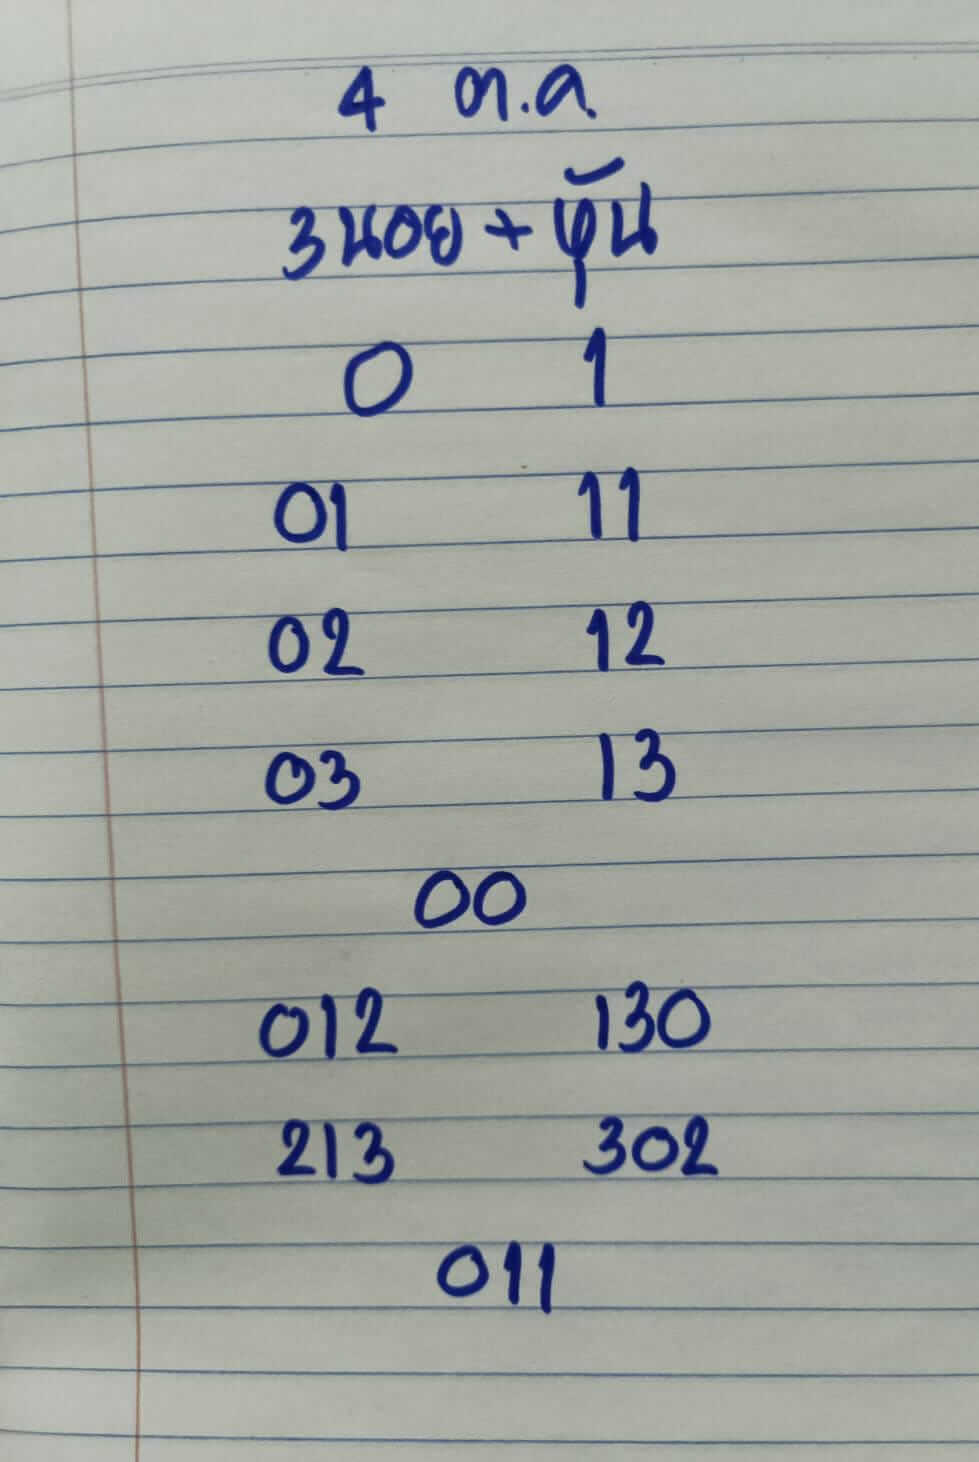 4 ต.ค.
3นอย + หุ้น
0 1
01 11
02 12
03 13
00
012 130
213 302
011